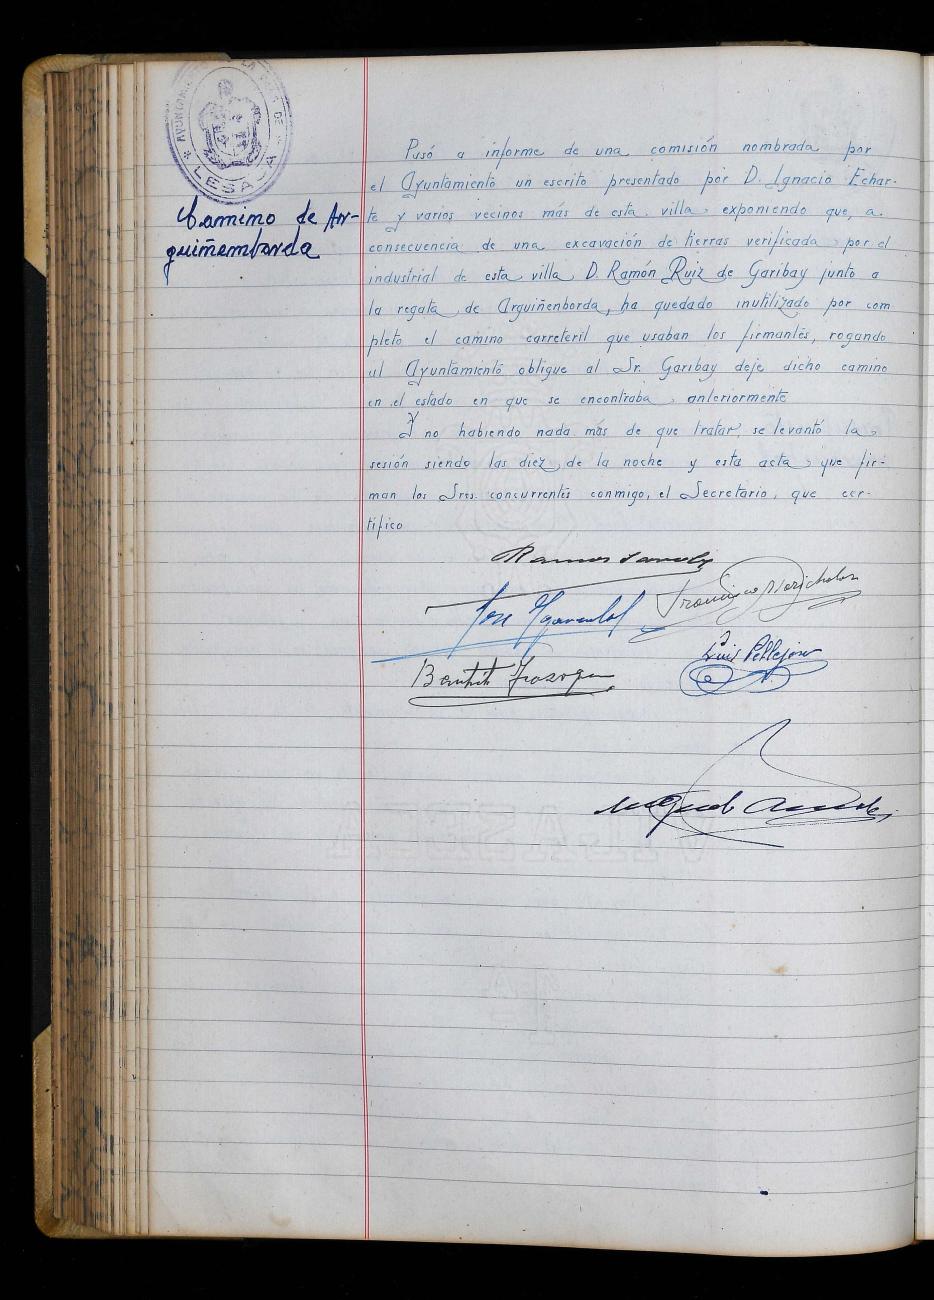 AYUNTAMIENTO DE LA VILLA DE
LESACA
Camino de Ar-
guiñemborda
Pasó a informe de una comisión nombrada por
el Ayuntamiento un escrito presentado por D. Ignacio Echar-
te y varios vecinos más de esta villa exponiendo que, a
consecuencia de una excavación de tierras verificada por el
industrial de esta villa D. Ramón Ruiz de Garibay junto a
la regata de Arguiñenborda, ha quedado inutilizado por com
pleto el camino carreteril que usaban los firmantes, rogando
al Ayuntamiento obligue al Sr. Garibay deje dicho camino
en el estado en que se encontraba anteriormente
Y no habiendo nada más de que tratar se levantó la
sesión siendo las diez de la noche y esta acta que fir-
man los Sres. concurrentes conmigo, el Secretario, que cer-
tifico
Ramon
Francisco Marichalar
Jose
Luis Pellejero